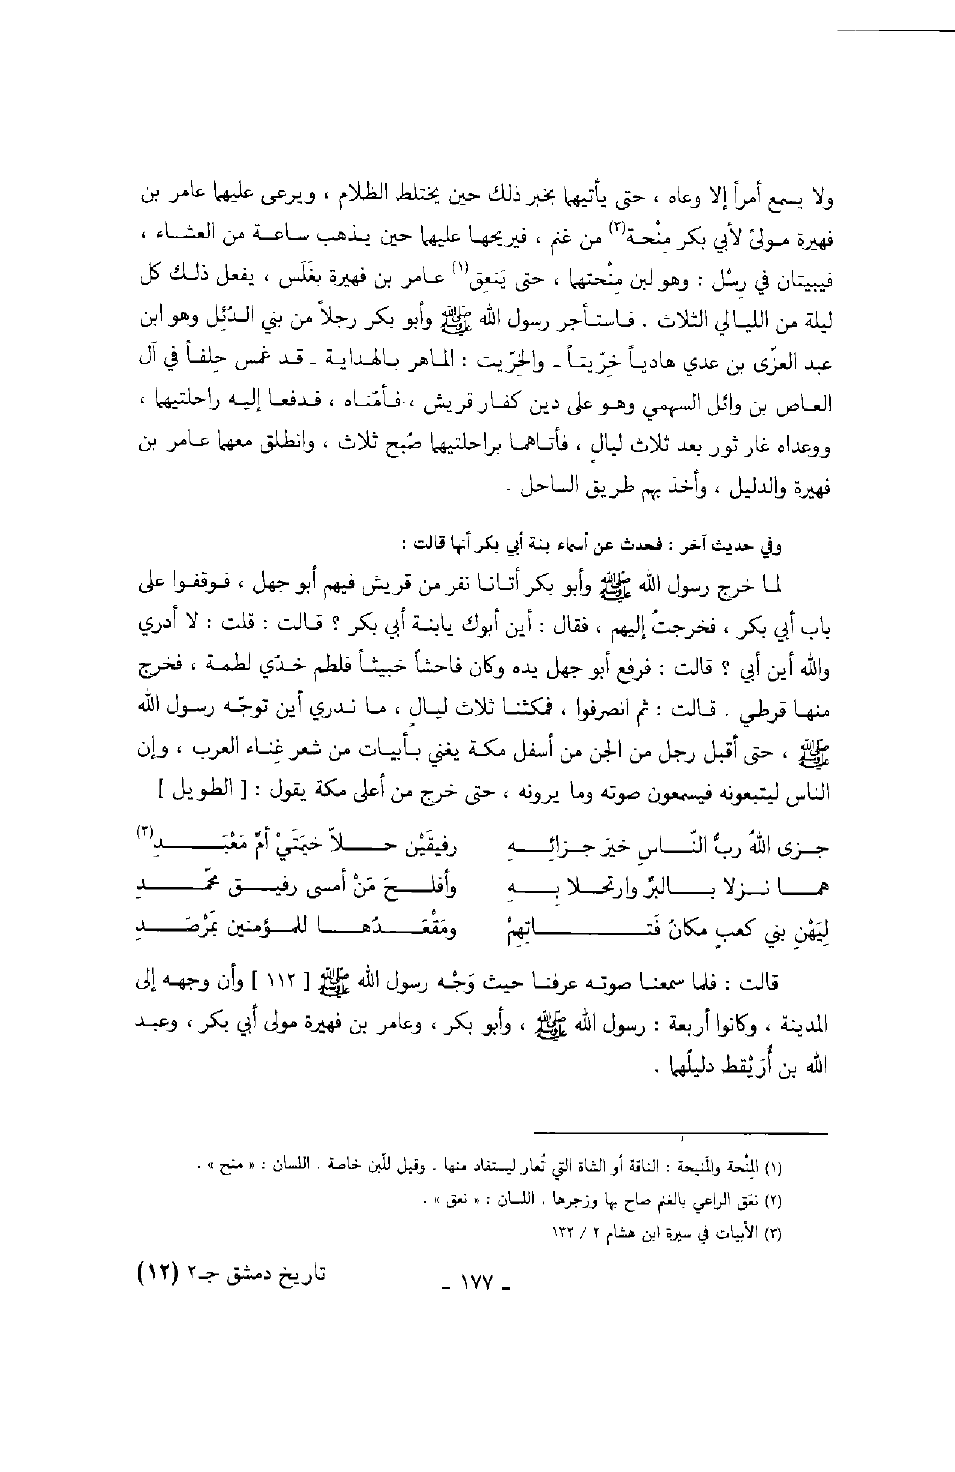 ولا يسمع أمراً إلا وعاه ، حتى يأتيهما بخبر ذلك حين يختلط الظلام ، ويرعى عليهما عامر بن
فهيرة مولىً لأبي بكر مِنْحة(٢) من غنم ، فيريحهـا عليهما حين يـذهب سـاعـة من العشـاء ،
فيبيتان في رِسْل : وهو لبن مِنْحتهما ، حتى يَنعِق(١) عـامر بن فهيرة بغَلَس ، يفعل ذلـك كل
ليلة من الليـالي الثلاث . فـاستـأجر رسول الله ﷺ وأبو بكر رجلاً من بني الـدُئِل وهو ابن
عبد العزّى بن عدي هاديـاً خِرّيتـاً ـ والخِرّيت : المـاهر بـالهدايـة ـ قـد غمس حِلفـاً في آل
العـاص بن وائل السهمي وهـو على دين كفـار قريش ، فـأمّنـاه ، فـدفعـا إليـه راحلتيهما ،
ووعداه غار ثور بعد ثلاث ليالٍ ، فأتـاهمـا براحلتيهما صُبح ثلاث ، وانطلق معهما عـامر بن
فهيرة والدليل ، وأخذ بهم طريق الساحل .
وفي حديث آخر : فحدث عن أسماء بنة أبي بكر أنها قالت :
لما خرج رسول الله ﷺ وأبو بكر أتـانـا نفر من قريش فيهم أبو جهل ، فـوقفـوا على
باب أبي بكر ، فخرجتُ إليهم ، فقال : أين أبوك يابنـة أبي بكر ؟ قـالت : قلت : لا أدري
والله أين أبي ؟ قالت : فرفع أبو جهل يده وكان فاحشاً خبيثـاً فلطم خـدّي لطمـة ، فخرج
منهـا قرطي . قـالت : ثم انصرفوا ، فمكثنـا ثلاث ليـالٍ ، مـا نـدري أين توجّـه رسول الله
ﷺ ، حتى أقبل رجل من الجن من أسفل مكة يغني بـأبيـات من شعر غِنـاء العرب ، وإن
الناس ليتبعونه فيسمعون صوته وما يرونه ، حتى خرج من أعلى مكة يقول : [ الطويل ]
جـزى اللهُ ربُّ النّـاسِ خيرَ جـزائِـهِ رفيقَيْن حـلاّ خيمَتَيْ أُمِّ مَعْبَـدِ(٣)
همـا نـزلا بـالبرِّ وارتحـلا بـهِ وأفلـحَ مَنْ أمسى رفيـقَ محمّـدِ
لِيَهْنِ بني كعبٍ مكانُ فَتـاتِهِمْ ومَقْعَـدُهـا للمـؤمنين بمَرْصَـدِ
قالت : فلما سمعنـا صوتـه عرفنـا حيث وَجْه رسول الله ﷺ [ ١١٢ ] وأن وجهـه إلى
المدينة ، وكانوا أربعة : رسول الله ﷺ ، وأبو بكر ، وعامر بن فهيرة مولى أبي بكر ، وعبـد
الله بن أُرَيْقط دليلُهما .
(١) المِنْحة والمَنيحة : الناقة أو الشاة التي تُعار ليستفاد منها . وقيل للّبن خاصة . اللسان : « منح » .
(٢) نعَق الراعي بالغنم صاح بها وزجرها . اللسان : « نعق » .
(٣) الأبيات في سيرة ابن هشام ٢ / ١٣٢
ـ ١٧٧ ـ تاريخ دمشق جـ٢ (١٢)